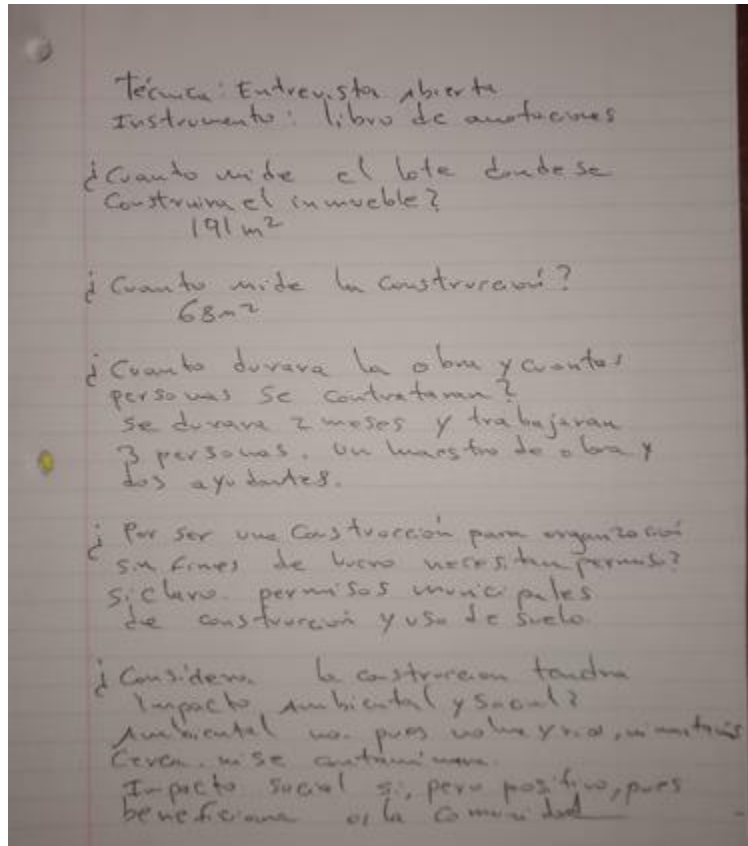 Técnica: Entrevista Abierta
Instrumento: libro de anotaciones
¿Cuanto mide el lote donde se
Construira el inmueble?
191 m²
¿Cuanto mide la construccion?
68m²
¿Cuanto durara la obra y cuantas
personas se contrataran?
Se durara 2 meses y trabajaran
3 personas. Un maestro de obra y
dos ayudantes.
¿Por ser una Construcción para organización
sin fines de lucro necesitan permiso?
Si claro. permisos municipales
de construccion y uso de suelo.
¿Considera la construccion tendra
Impacto Ambiental y Social?
Ambiental no. pues no hay rios, ni
cerca. ni se contaminara.
Impacto social si, pero positivo, pues
beneficiara a la Comunidad